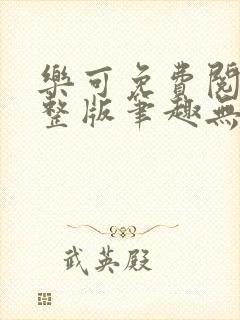 樂可免費閱
整版筆趣無
武英殿